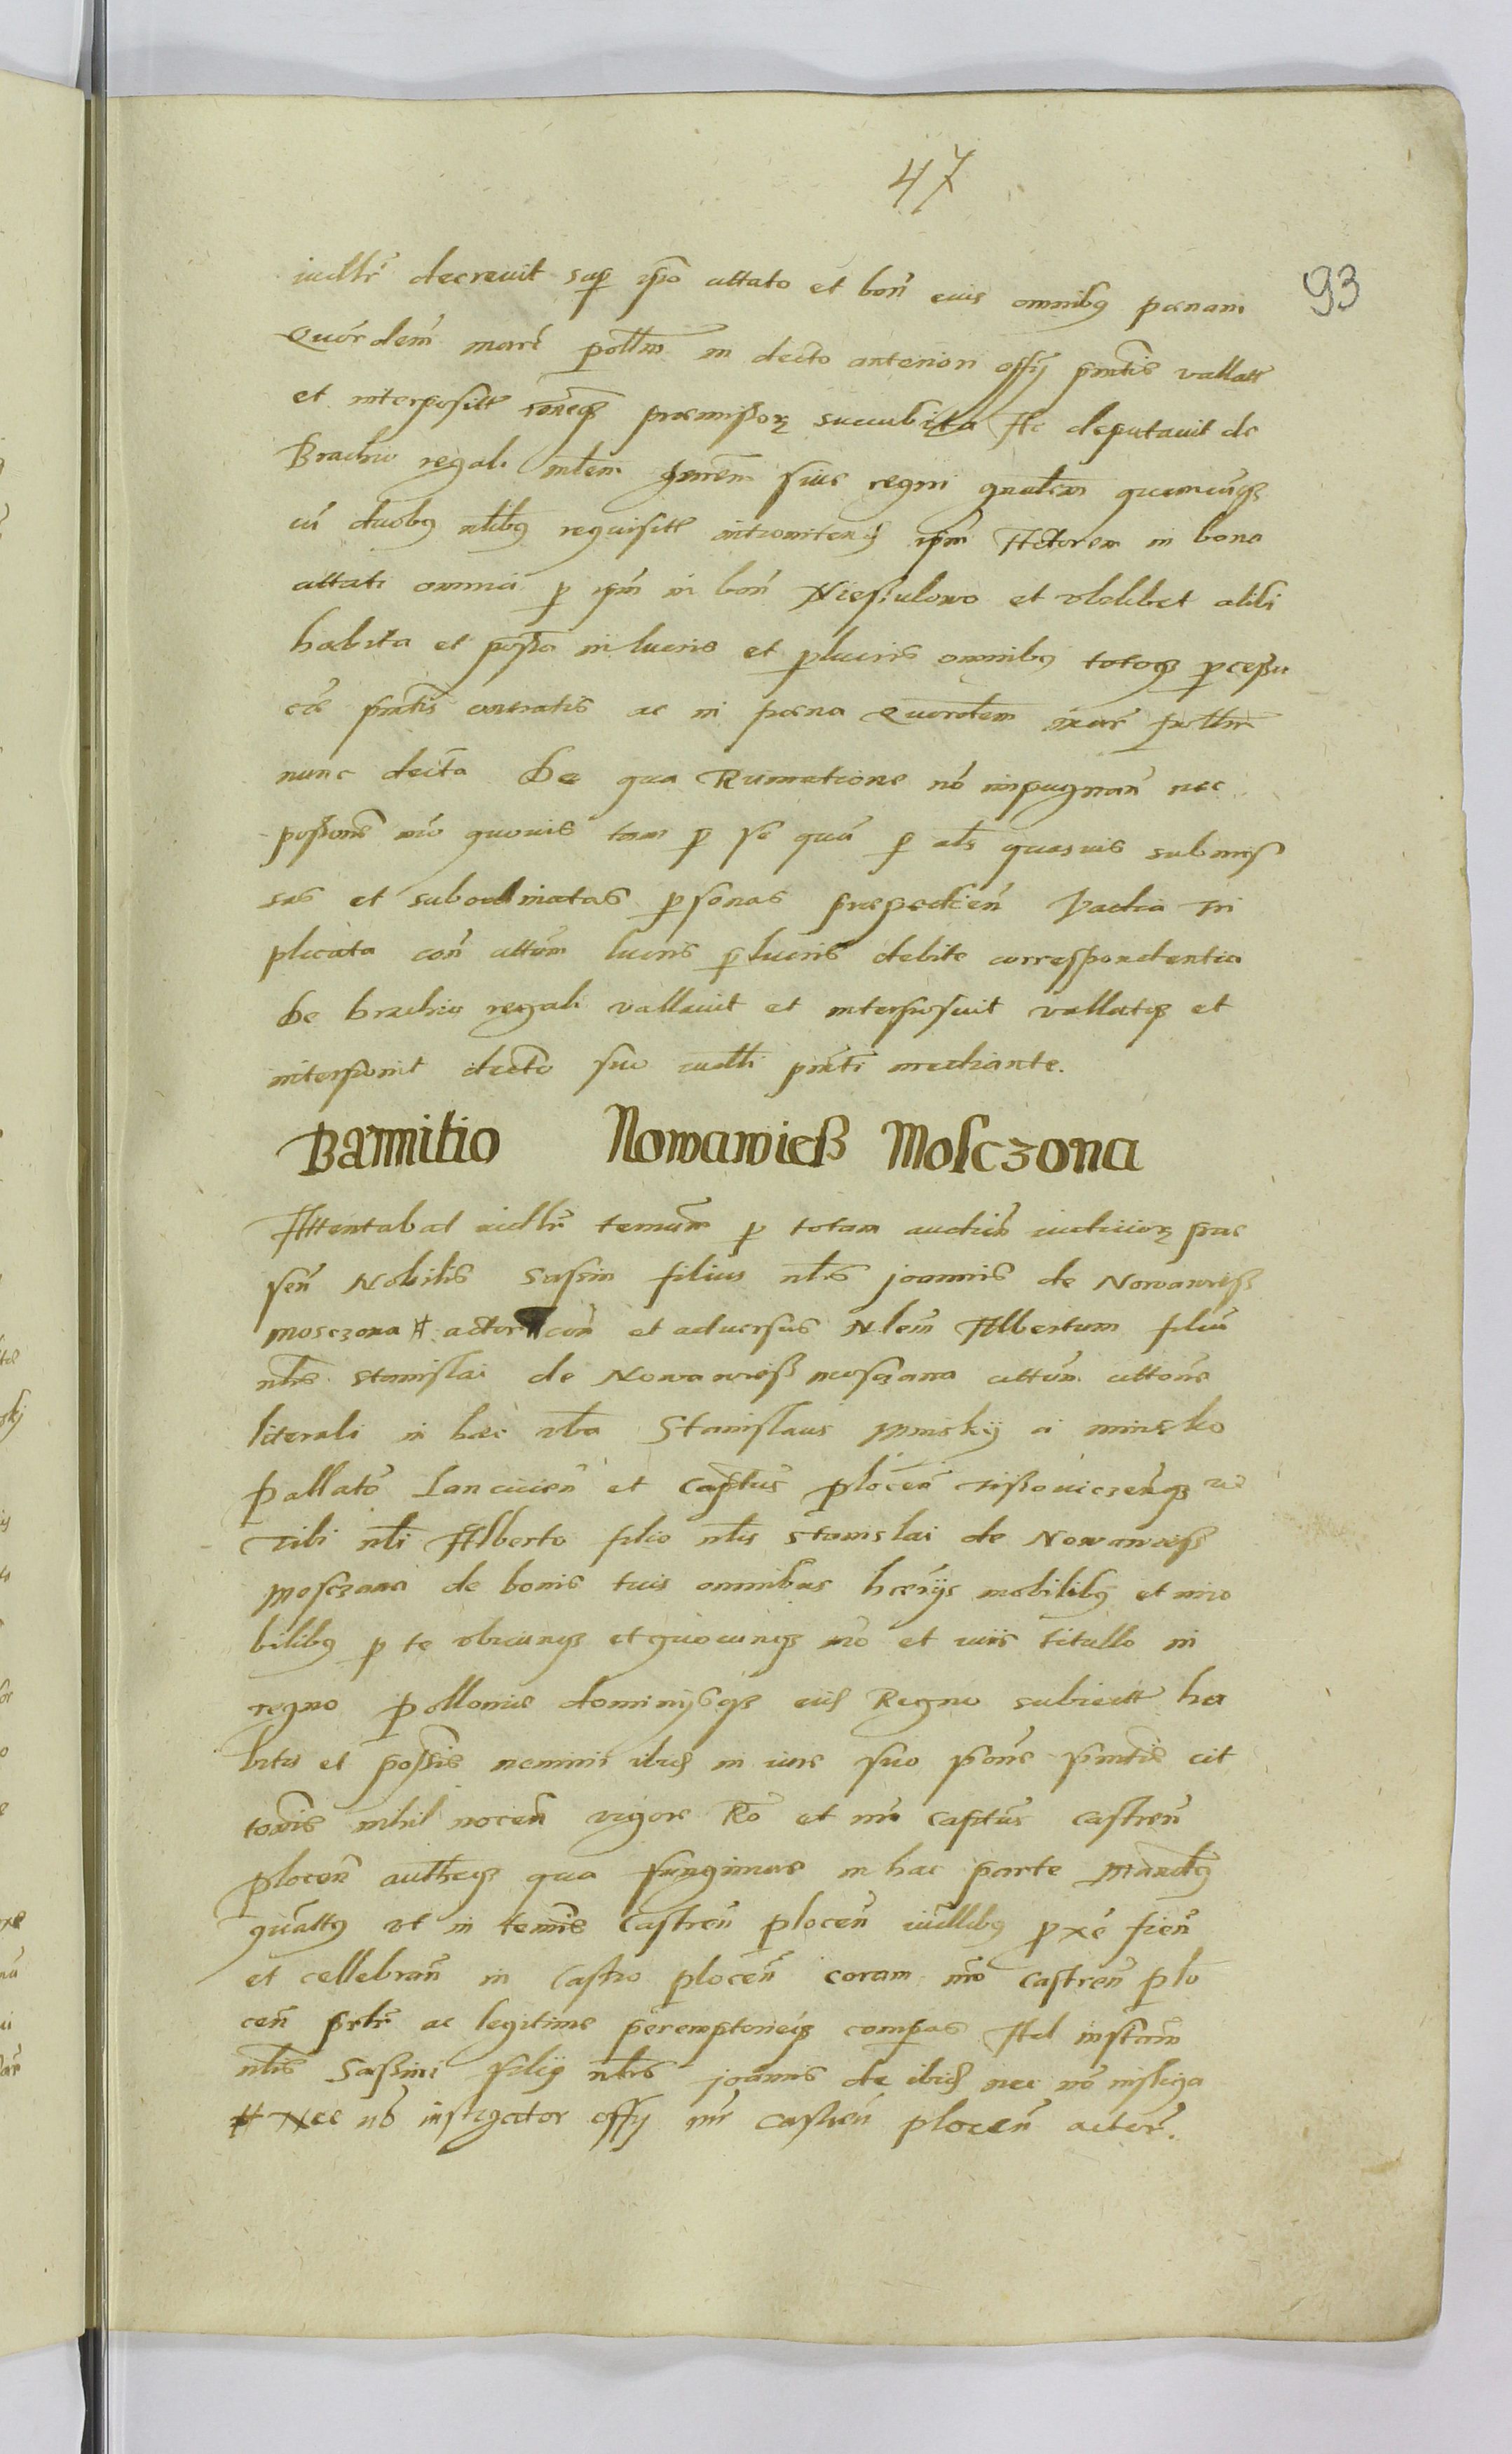 47
93
iudltr decrevit sup ipo cittato et bon eius omnibus pænam
Quordem marc pollm in decto anteriori offy pntis vallatt
et interposit roneqz præmissorz succubita Ac deputavit de
Brachio regali mlem gnrem sive regni gnalem quemcunqz
cu duobus nlibus requisitt intromitens ipm Actorem in bona
cittati omnia p ipm in bon Niesulowo et vbilibet alibi
habita et possa in lucris et plucris omnibus totoqz pcessu
cæ pntis contratis ac in pæna Quordem mar pollm
nunc decta De qua Rumatione no impugnan nec
possione mo quovis tam p se qua p als quasvis submis
sas et subordinatas psonas præpedien Vadia tri
plicata con cittum lucris plucris debite correspondentia
De brachio regali vallavit et interposuit vallatqz et
interponit decto suo iudli pnti mediante.
Bannitio Nowawieß Mosczona
Attentabat iudltr temum p totam audien iudiciorz præ
sen Nobilis Sassin filius nlis joannis de Nowawieß
mosczona # actor con et adversus Nlem Albertum filiu
nlis Stanislai de Nowawieß mosczona cittum cittone
literali in hæc vba Stanislaus Minskij a minsko
Pallats Lancicien et Captus plocen
Tibi nli Alberto filio nlis Stanislai de Nowawieß
Mosczona de bonis tuis omnibus hæriis mobilibus et imo
bilibus p te vbicunqz et quocunqz mo et iuris titullo in
regno Polloniæ dominijsqz eius Regno subiectt ha
bitis et possis nemini ibid in iure suo pone pntis cit
tonis nihil nocen vigore Ro et mri captus castren
plocen authteqz qua fungimur in hac parte Mandus
quattus vt in temis Castren plocen iudllibus pxe fien
et cellebran in Castro plocen coram nro castren plo
cen prlr ac legitime peremptorieqz compas Ad instam
nlis Sassini filij nlis joannis de ibid nec no instiga
# Nec no instigator offy nri castren plocen actor.